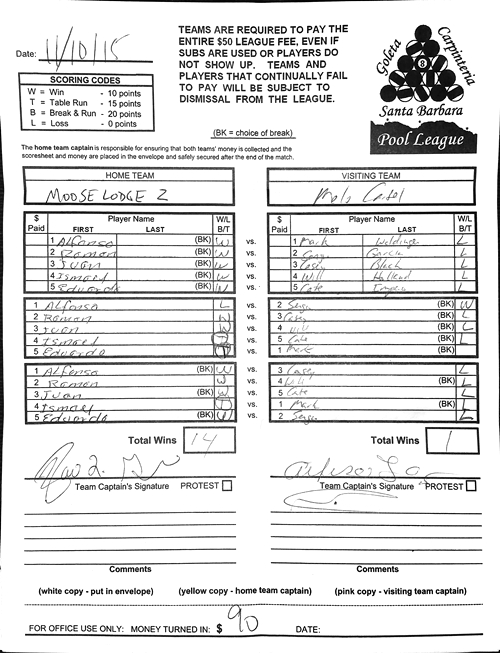 Date: 11/10/15
TEAMS ARE REQUIRED TO PAY THE
ENTIRE $50 LEAGUE FEE, EVEN IF
SUBS ARE USED OR PLAYERS DO
NOT SHOW UP. TEAMS AND
PLAYERS THAT CONTINUALLY FAIL
TO PAY WILL BE SUBJECT TO
DISMISSAL FROM THE LEAGUE.
(BK = choice of break)
SCORING CODES
W = Win - 10 points
T = Table Run - 15 points
B = Break & Run - 20 points
L = Loss - 0 points
Goleta Carpinteria
8
Santa Barbara
Pool League
The home team captain is responsible for ensuring that both teams' money is collected and the
scoresheet and money are placed in the envelope and safely secured after the end of the match.
HOME TEAM VISITING TEAM
MOOSE LODGE 2
$ Paid Player Name FIRST LAST W/L B/T
$ Paid Player Name FIRST LAST W/L B/T
1 Alfonso (BK) W vs. 1 Mark L
2 Ramon (BK) W vs. 2 L
3 Juan (BK) W vs. 3 Casey Black L
4 Ismael (BK) W vs. 4 Will L
5 Eduardo (BK) W vs. 5 Cate L
1 Alfonso L vs. 2 Serge (BK) W
2 Ramon W vs. 3 Casey (BK) L
3 Juan W vs. 4 Will (BK) L
4 Ismael vs. 5 Cate (BK) L
5 Eduardo vs. 1 Mark (BK) L
1 Alfonso (BK) W vs. 3 Casey L
2 Ramon W vs. 4 Will (BK) L
3 Juan (BK) W vs. 5 Cate L
4 Ismael vs. 1 Mark (BK) L
5 Eduardo (BK) W vs. 2 Serge L
Total Wins 14 Total Wins 1
Team Captain's Signature PROTEST Team Captain's Signature PROTEST
Comments Comments
(white copy - put in envelope) (yellow copy - home team captain) (pink copy - visiting team captain)
FOR OFFICE USE ONLY: MONEY TURNED IN: $ 90 DATE: